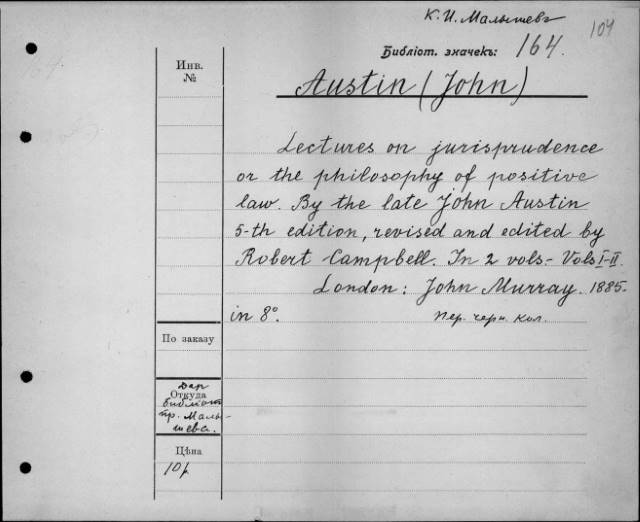 К. И. Малышевъ
104
Библіот. значекъ: 164.
Инв.
№
Austin (John)
Lectures on jurisprudence
or the philosophy of positive
law. By the late John Austin
5-th edition, revised and edited by
Robert Campbell. In 2 vols - Vols I-II.
London: John Murray. 1885.
in 8°.
пер. черн. кол.
По заказу
Откуда
Дар
библіот
пр. Малы-
шева.
Цѣна
10 р.